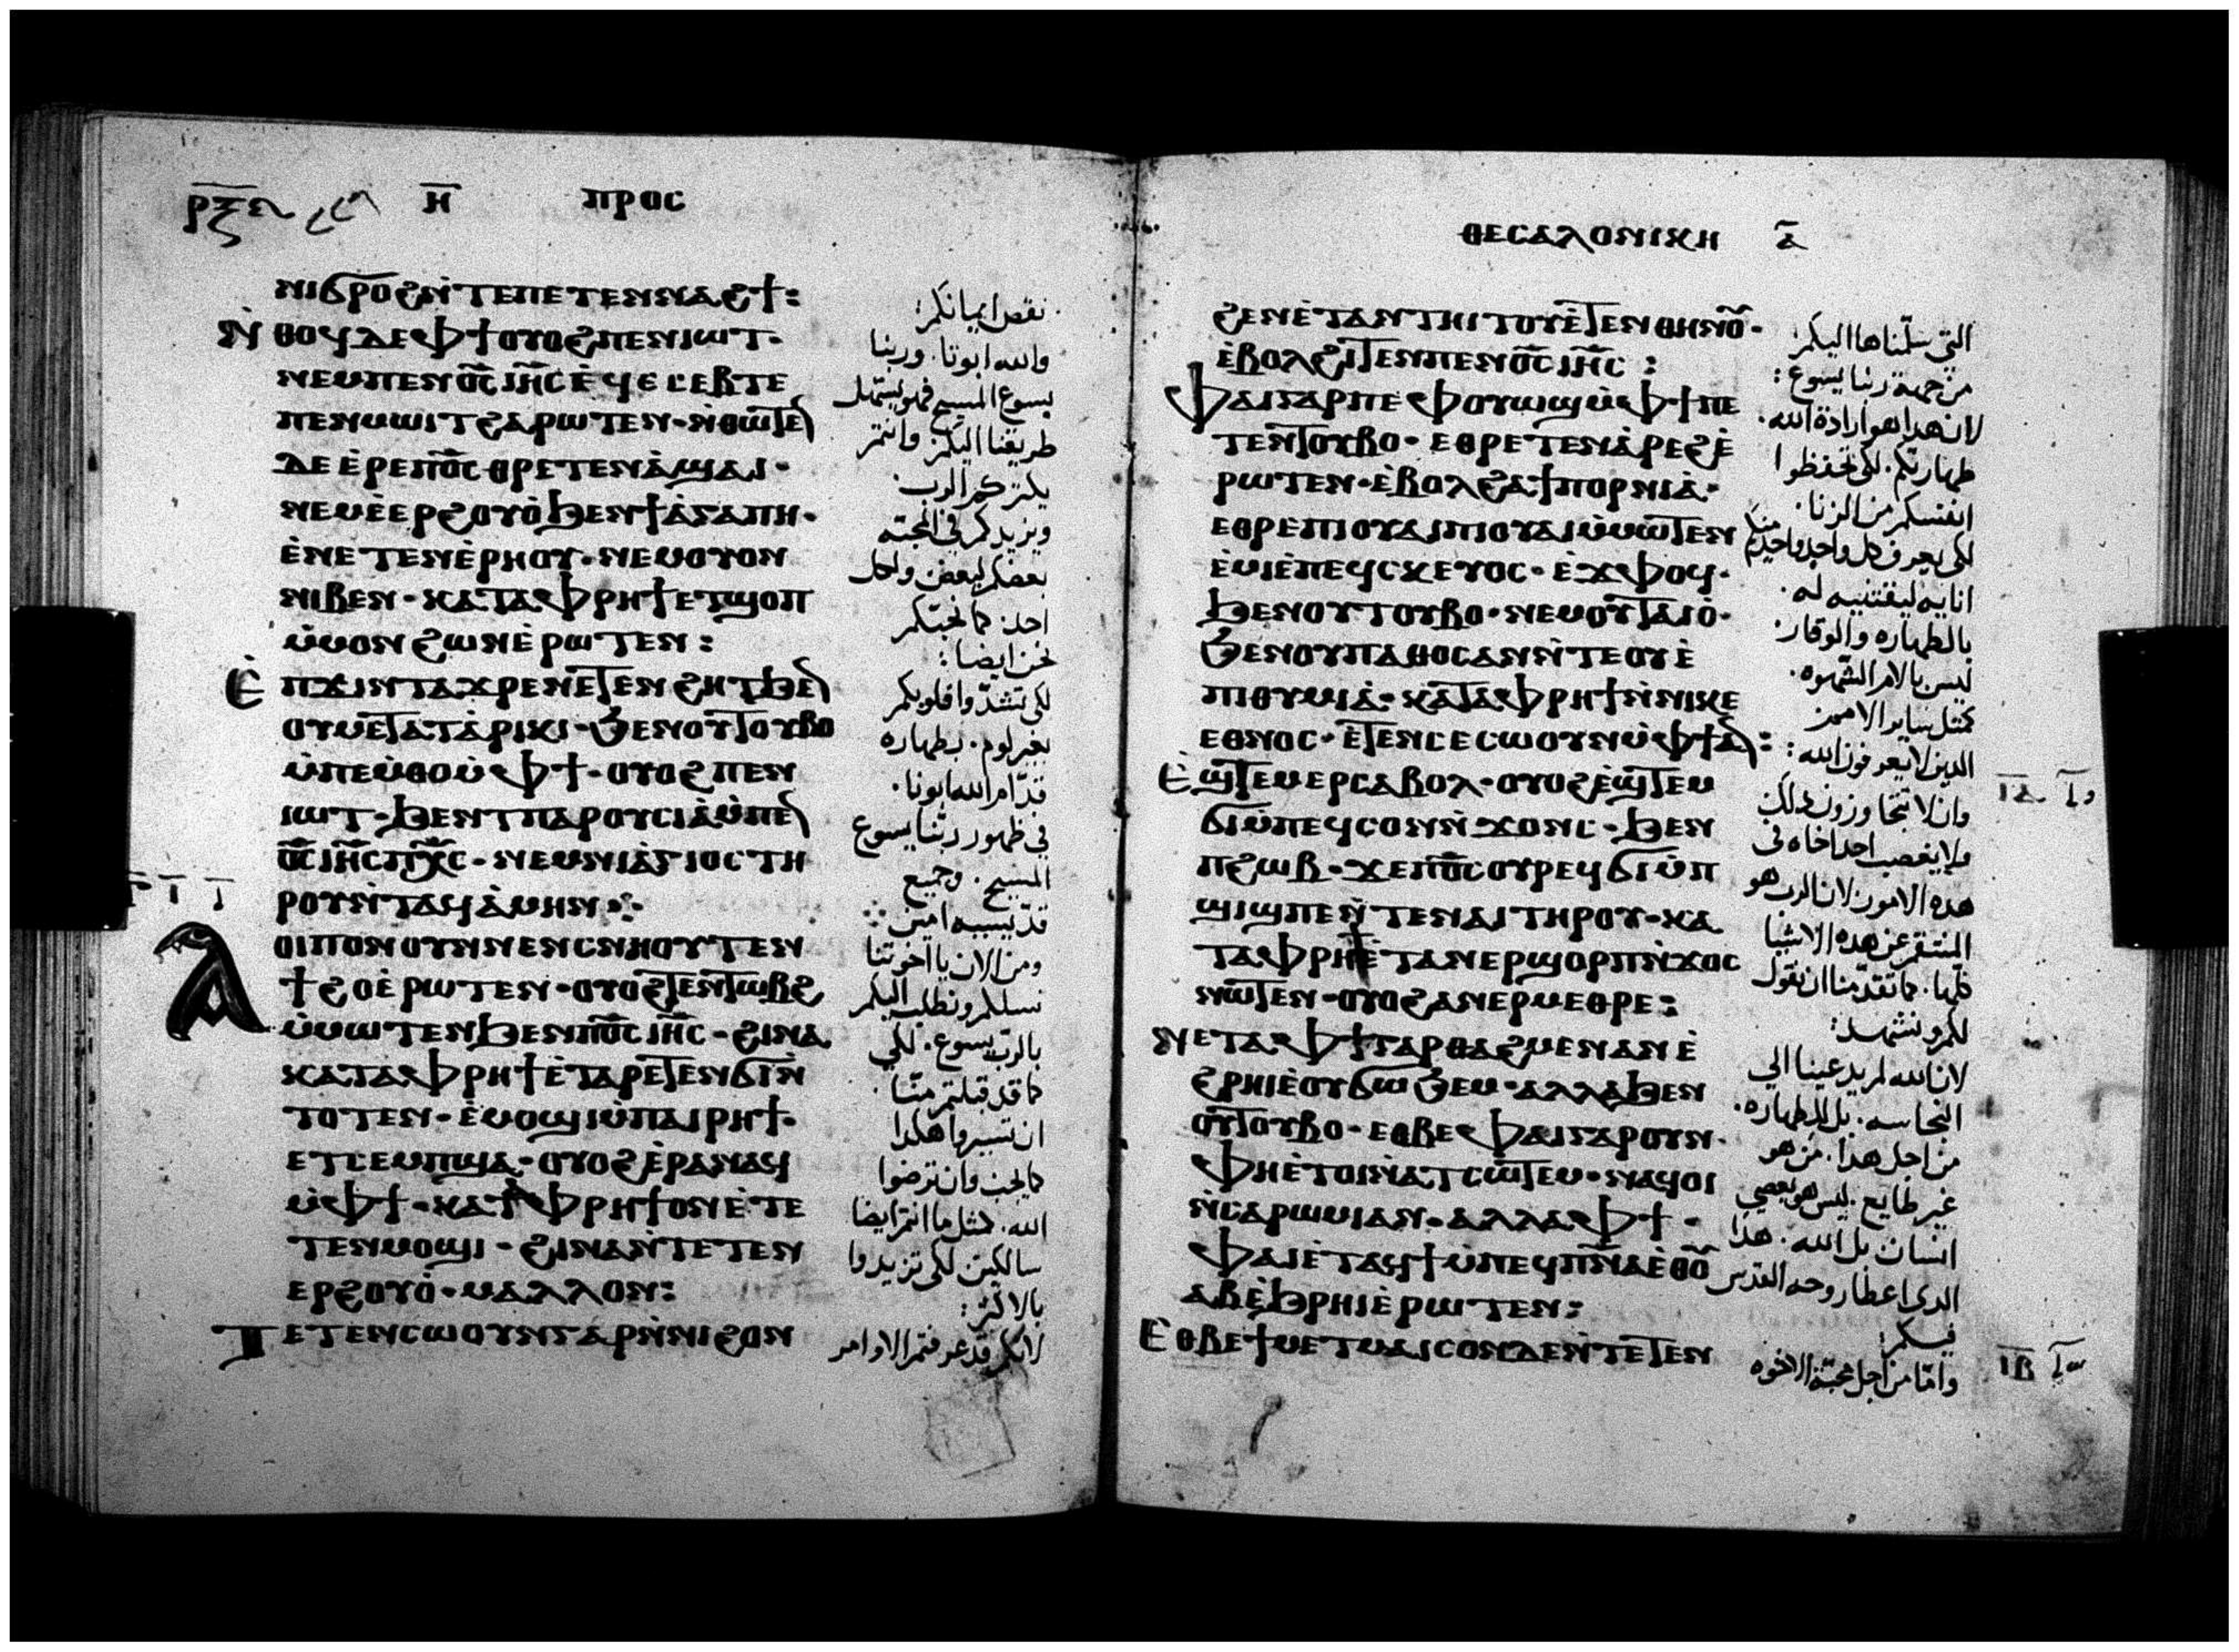 ⲏ̅ ⲡⲣⲟⲥ
ⲛⲓϭⲣⲟϩ ⲛ̀ⲧⲉ ⲡⲉⲧⲉⲛⲛⲁϩϯ:
ⲛ̀ⲑⲟϥ ⲇⲉ ⲫϯ ⲟⲩⲟϩ ⲡⲉⲛⲓⲱⲧ·
ⲛⲉⲙ ⲡⲉⲛⲟ̅ⲥ̅ ⲓⲏ̅ⲥ̅ ⲉ̀ϥⲉⲥⲉⲃⲧⲉ
ⲡⲉⲛⲙⲱⲓⲧ ϩⲁⲣⲱⲧⲉⲛ· ⲛ̀ⲑⲱⲧⲉⲛ
ⲇⲉ ⲉ̀ⲣⲉ ⲡⲟ̅ⲥ̅ ⲑⲣⲉⲧⲉⲛⲁ̀ϣⲁⲓ·
ⲛⲉⲙ ⲉ̀ⲉⲣϩⲟⲩⲟ̀ ϧⲉⲛ ϯⲁ̀ⲅⲁⲡⲏ·
ⲉ̀ⲛⲉⲧⲉⲛⲉ̀ⲣⲏⲟⲩ· ⲛⲉⲙ ⲟⲩⲟⲛ
ⲛⲓⲃⲉⲛ· ⲕⲁⲧⲁ ⲫⲣⲏϯ ⲉⲧϣⲟⲡ
ⲙ̀ⲙⲟⲛ ϩⲱⲛ ⲉ̀ⲣⲱⲧⲉⲛ:
ⲉ̀ⲡϫⲓⲛⲧⲁϫⲣⲉ ⲛⲉⲧⲉⲛϩⲏⲧ ϧⲉⲛ
ⲟⲩⲙⲉⲧⲁⲧⲁ̀ⲣⲓⲕⲓ· ϧⲉⲛ ⲟⲩⲧⲟⲩⲃⲟ
ⲙ̀ⲡⲉⲙ̀ⲑⲟ ⲙ̀ⲫϯ· ⲟⲩⲟϩ ⲡⲉⲛ
ⲓⲱⲧ· ϧⲉⲛ ⲧⲡⲁⲣⲟⲩⲥⲓⲁ̀ ⲙ̀ⲡⲉⲛ
ⲟ̅ⲥ̅ ⲓⲏ̅ⲥ̅ ⲡⲭ̅ⲥ̅· ⲛⲉⲙ ⲛⲓⲁ̀ⲅⲓⲟⲥ ⲧⲏ
ⲣⲟⲩ ⲛ̀ⲧⲁϥ ⲁ̀ⲙⲏⲛ
ⲗⲟⲓⲡⲟⲛ ⲟⲩⲛ ⲛⲉⲛⲥⲛⲏⲟⲩ ⲧⲉⲛ
ϯϩⲟ ⲉ̀ⲣⲱⲧⲉⲛ· ⲟⲩⲟϩ ⲧⲉⲛⲧⲱⲃϩ
ⲙ̀ⲙⲱⲧⲉⲛ ϧⲉⲛ ⲡⲟ̅ⲥ̅ ⲓⲏ̅ⲥ̅· ϩⲓⲛⲁ
ⲕⲁⲧⲁ ⲫⲣⲏϯ ⲉ̀ⲧⲁⲣⲉⲧⲉⲛϭⲓ ⲛ̀
ⲧⲟⲧⲉⲛ· ⲉ̀ⲙⲟϣⲓ ⲙ̀ⲡⲁⲓⲣⲏϯ·
ⲉⲧⲥⲉⲙⲡϣⲁ· ⲟⲩⲟϩ ⲉ̀ⲣⲁⲛⲁϥ
ⲙ̀ⲫϯ· ⲕⲁⲧⲁ ⲫⲣⲏϯ ⲟⲛ ⲉ̀ⲧⲉ
ⲧⲉⲛⲙⲟϣⲓ· ϩⲓⲛⲁ ⲛ̀ⲧⲉⲧⲉⲛ
ⲉⲣϩⲟⲩⲟ̀· ⲙⲁⲗⲗⲟⲛ:
ⲧⲉⲧⲉⲛⲥⲱⲟⲩⲛ ⲅⲁⲣ ⲛ̀ⲛⲓϩⲟⲛ
نقص ايمانكم:
والله ابونا. وربنا
يسوع المسيح فهو يستهل
طريقنا اليكم وانتم
يكثركم الرب
ويزيدكم في المحبة
بعضكم لبعض ولكل
احد. كما نحبكم
نحن ايضا:
لكي تشدّوا قلوبكم
بغير لوم. بطهاره
قدّام الله ابونا.
في ظهور ربّنا يسوع
المسيح. وجميع
قدّيسيه امين
ومن الان يا اخوتنا
نسلكم ونطلب اليكم
بالربّ يسوع. لكي
كما قد قبلتم منّا.
ان تسيروا هكذا
كما يجب وان ترضوا
الله. كمثل ما انتم ايضا
سالكين لكي تزيدوا
بالاكثر:
لانكم قد عرفتم الاوامر
ⲑⲉⲥⲁⲗⲟⲛⲓⲕⲏ ⲁ̅
ϩⲉⲛ ⲉ̀ⲧⲁⲛⲧⲏⲓⲧⲟⲩ ⲉ̀ⲧⲉⲛⲑⲏⲛⲟⲩ·
ⲉ̀ⲃⲟⲗ ϩⲓⲧⲉⲛ ⲡⲉⲛⲟ̅ⲥ̅ ⲓⲏ̅ⲥ̅:
ⲫⲁⲓ ⲅⲁⲣ ⲡⲉ ⲫⲟⲩⲱϣ ⲙ̀ⲫϯ ⲡⲉ
ⲧⲉⲛⲧⲟⲩⲃⲟ· ⲉⲑⲣⲉⲧⲉⲛⲁ̀ⲣⲉϩ ⲉ̀
ⲣⲱⲧⲉⲛ· ⲉ̀ⲃⲟⲗ ϩⲁ ϯⲡⲟⲣⲛⲓⲁ̀·
ⲉⲑⲣⲉ ⲡⲓⲟⲩⲁⲓ ⲡⲓⲟⲩⲁⲓ ⲙ̀ⲙⲱⲧⲉⲛ
ⲉ̀ⲙⲓ ⲉ̀ⲡⲉϥⲥⲕⲉⲩⲟⲥ· ⲉ̀ϫⲫⲟϥ·
ϧⲉⲛ ⲟⲩⲧⲟⲩⲃⲟ· ⲛⲉⲙ ⲟⲩⲧⲁⲓⲟ̀·
ϧⲉⲛ ⲟⲩⲡⲁⲑⲟⲥ ⲁⲛ ⲛ̀ⲧⲉ ⲟⲩⲉ̀
ⲡⲓⲑⲩⲙⲓⲁ̀· ⲕⲁⲧⲁ ⲫⲣⲏϯ ⲛ̀ⲛⲓⲕⲉ
ⲉⲑⲛⲟⲥ· ⲉ̀ⲧⲉⲛⲥⲉⲥⲱⲟⲩⲛ ⲙ̀ⲫϯ ⲁⲛ:
ⲉ̀ϣⲧⲉⲙⲉⲣⲥⲁⲃⲟⲗ· ⲟⲩⲟϩ ⲉ̀ϣⲧⲉⲙ
ϭⲓ ⲙ̀ⲡⲉϥⲥⲟⲛ ⲛ̀ϫⲟⲛⲥ· ϧⲉⲛ
ⲡϩⲱⲃ· ϫⲉ ⲡⲟ̅ⲥ̅ ⲟⲩⲣⲉϥϭⲓ ⲙ̀ⲡ
ϣⲓϣ ⲡⲉ ⲛ̀ⲧⲉ ⲛⲁⲓ ⲧⲏⲣⲟⲩ· ⲕⲁ
ⲧⲁ ⲫⲣⲏϯ ⲉ̀ⲧⲁⲛⲉⲣϣⲟⲣⲡ ⲛ̀ϫⲟⲥ
ⲛⲱⲧⲉⲛ· ⲟⲩⲟϩ ⲁⲛⲉⲣⲙⲉⲑⲣⲉ:
ⲛⲉⲧⲁ ⲫϯ ⲅⲁⲣ ⲑⲁϩⲙⲉⲛ ⲁⲛ ⲉ̀
ϩⲣⲏⲓ ⲉ̀ⲟⲩϭⲱϧⲉⲙ· ⲁⲗⲗⲁ ϧⲉⲛ
ⲟⲩⲧⲟⲩⲃⲟ· ⲉⲑⲃⲉ ⲫⲁⲓ ⲅⲁⲣ ⲟⲩⲛ·
ⲫⲏ ⲉ̀ⲧⲟⲓ ⲛ̀ⲁⲧⲥⲱⲧⲉⲙ· ⲛⲁϥⲟⲓ
ⲛ̀ⲥⲁ ⲣⲱⲙⲓ ⲁⲛ· ⲁⲗⲗⲁ ⲫϯ·
ⲫⲁⲓ ⲉ̀ⲧⲁϥϯ ⲙ̀ⲡⲉϥⲡ̅ⲛ̅ⲁ̅ ⲉ̀ⲑⲟ̅
ⲁⲃ ⲉ̀ϧⲣⲏⲓ ⲉ̀ⲣⲱⲧⲉⲛ:
ⲉⲑⲃⲉ ϯⲙⲉⲧⲙⲁⲓⲥⲟⲛ ⲇⲉ ⲛ̀ⲧⲉⲧⲉⲛ
التي سلّمناها اليكم
من جهة ربنا يسوع:
لان هدا هو ارادة الله.
طهارتكم. لكي تحفظوا
انفسكم من الزنا.
لكي يعرف كل واحد واحد منكم
انايه ليقتنيه له.
بالطهاره والوقار:
ليس بالام الشهوه.
كمثل ساير الامم
الدين لا يعرفون الله:
وان لا تتجاوزون دلك
ولا يغصب احد اخاه في
هده الامور. لان الرب هو
المنتقم عن هده الاشيا
كلّها. كما تقدّمنا ان نقول
لكم ونشهد:
لان الله لم يدعينا الي
النجاسه. بل للطهاره.
من اجل هدا. من هو
غير طايع. ليس هو يعصي
انسان بل الله. هدا
الدي اعطا روحه القدس
فيكم:
وامّا من اجل محبّة الاخوه
ⲓⲁ̅
ⲓⲃ̅